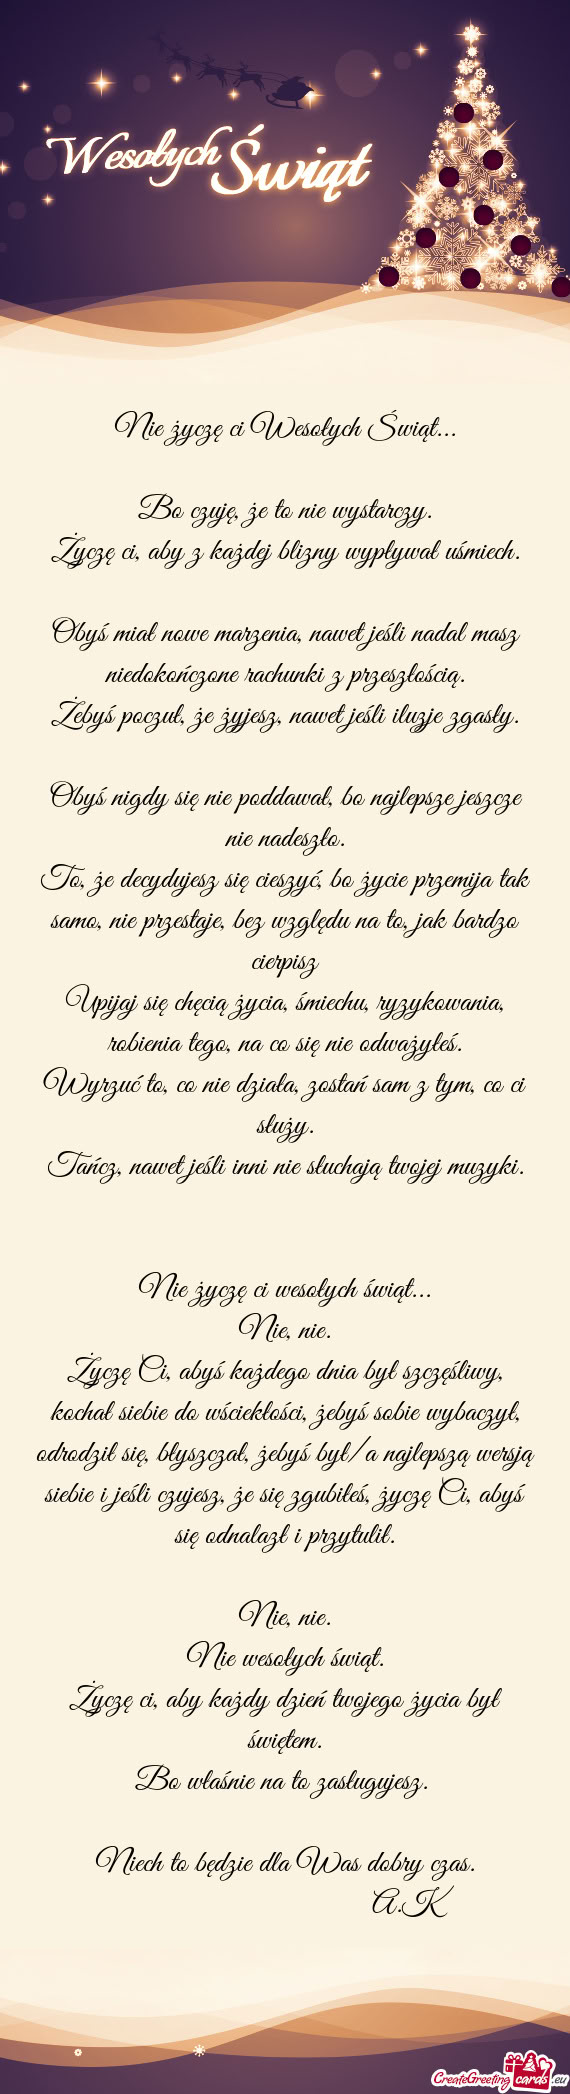 Wesołych Świąt
Nie życzę ci Wesołych Świąt...
Bo czuję, że to nie wystarczy.
Życzę ci, aby z każdej blizny wypływał uśmiech.
Obyś miał nowe marzenia, nawet jeśli nadal masz
niedokończone rachunki z przeszłością.
Żebyś poczuł, że żyjesz, nawet jeśli iluzje zgasły.
Obyś nigdy się nie poddawał, bo najlepsze jeszcze
nie nadeszło.
To, że decydujesz się cieszyć, bo życie przemija tak
samo, nie przestaje, bez względu na to, jak bardzo
cierpisz
Upijaj się chęcią życia, śmiechu, ryzykowania,
robienia tego, na co się nie odważyłeś.
Wyrzuć to, co nie działa, zostań sam z tym, co ci
służy.
Tańcz, nawet jeśli inni nie słuchają twojej muzyki.
Nie życzę ci wesołych świąt...
Nie, nie.
Życzę Ci, abyś każdego dnia był szczęśliwy,
kochał siebie do wściekłości, żebyś sobie wybaczył,
odrodził się, błyszczał, żebyś był/a najlepszą wersją
siebie i jeśli czujesz, że się zgubiłeś, życzę Ci, abyś
się odnalazł i przytulił.
Nie, nie.
Nie wesołych świąt.
Życzę ci, aby każdy dzień twojego życia był
świętem.
Bo właśnie na to zasługujesz.
Niech to będzie dla Was dobry czas.
A.K
CreateGreetingcards.eu